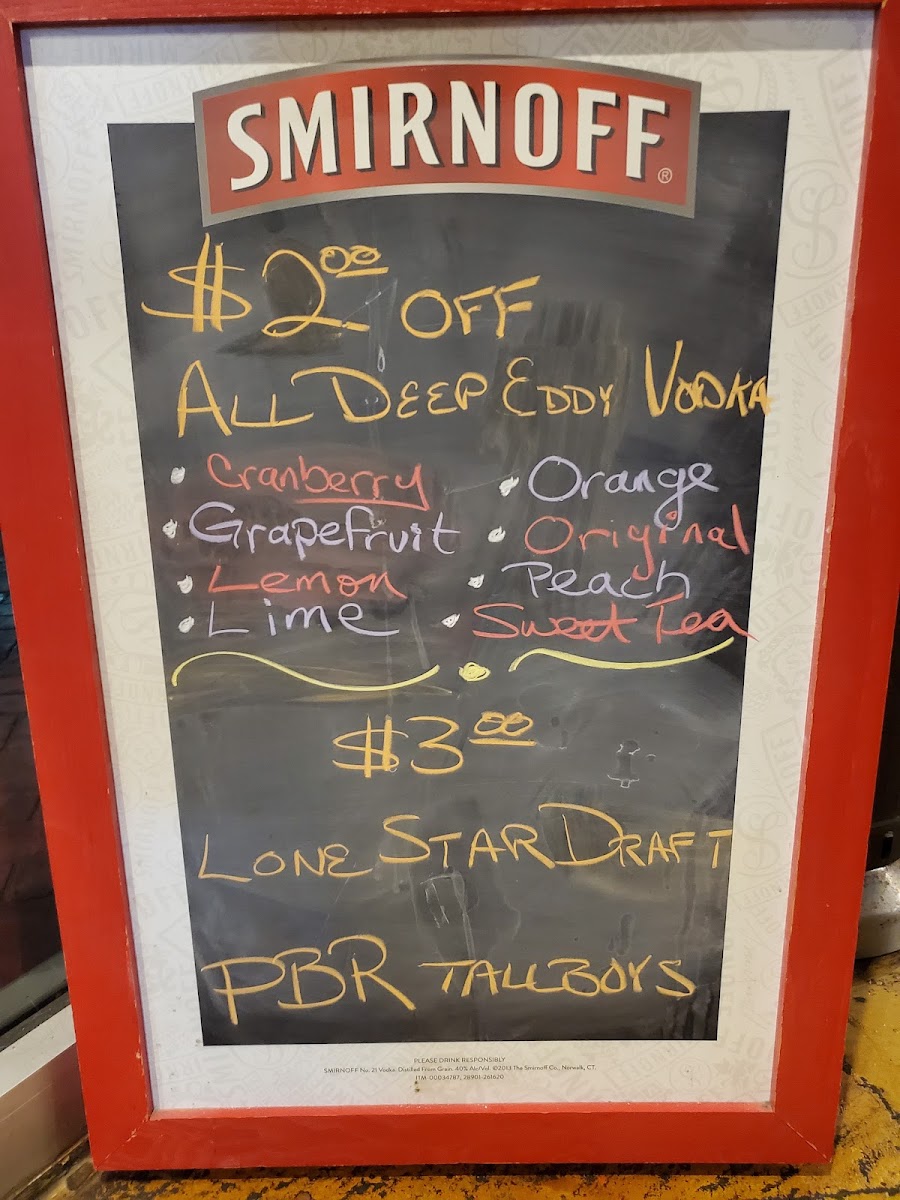 SMIRNOFF®
$2.00 OFF
ALL DEEP EDDY VODKA
• Cranberry
• Grapefruit
• Lemon
• Lime
• Orange
• Original
• Peach
• Sweet Tea
$3.00
LONE STAR DRAFT
PBR TALLBOYS
PLEASE DRINK RESPONSIBLY
SMIRNOFF No. 21 Vodka. Distilled From Grain. 40% Alc/Vol. ©2013 The Smirnoff Co., Norwalk, CT.
ITM-00034787, 28901-261620